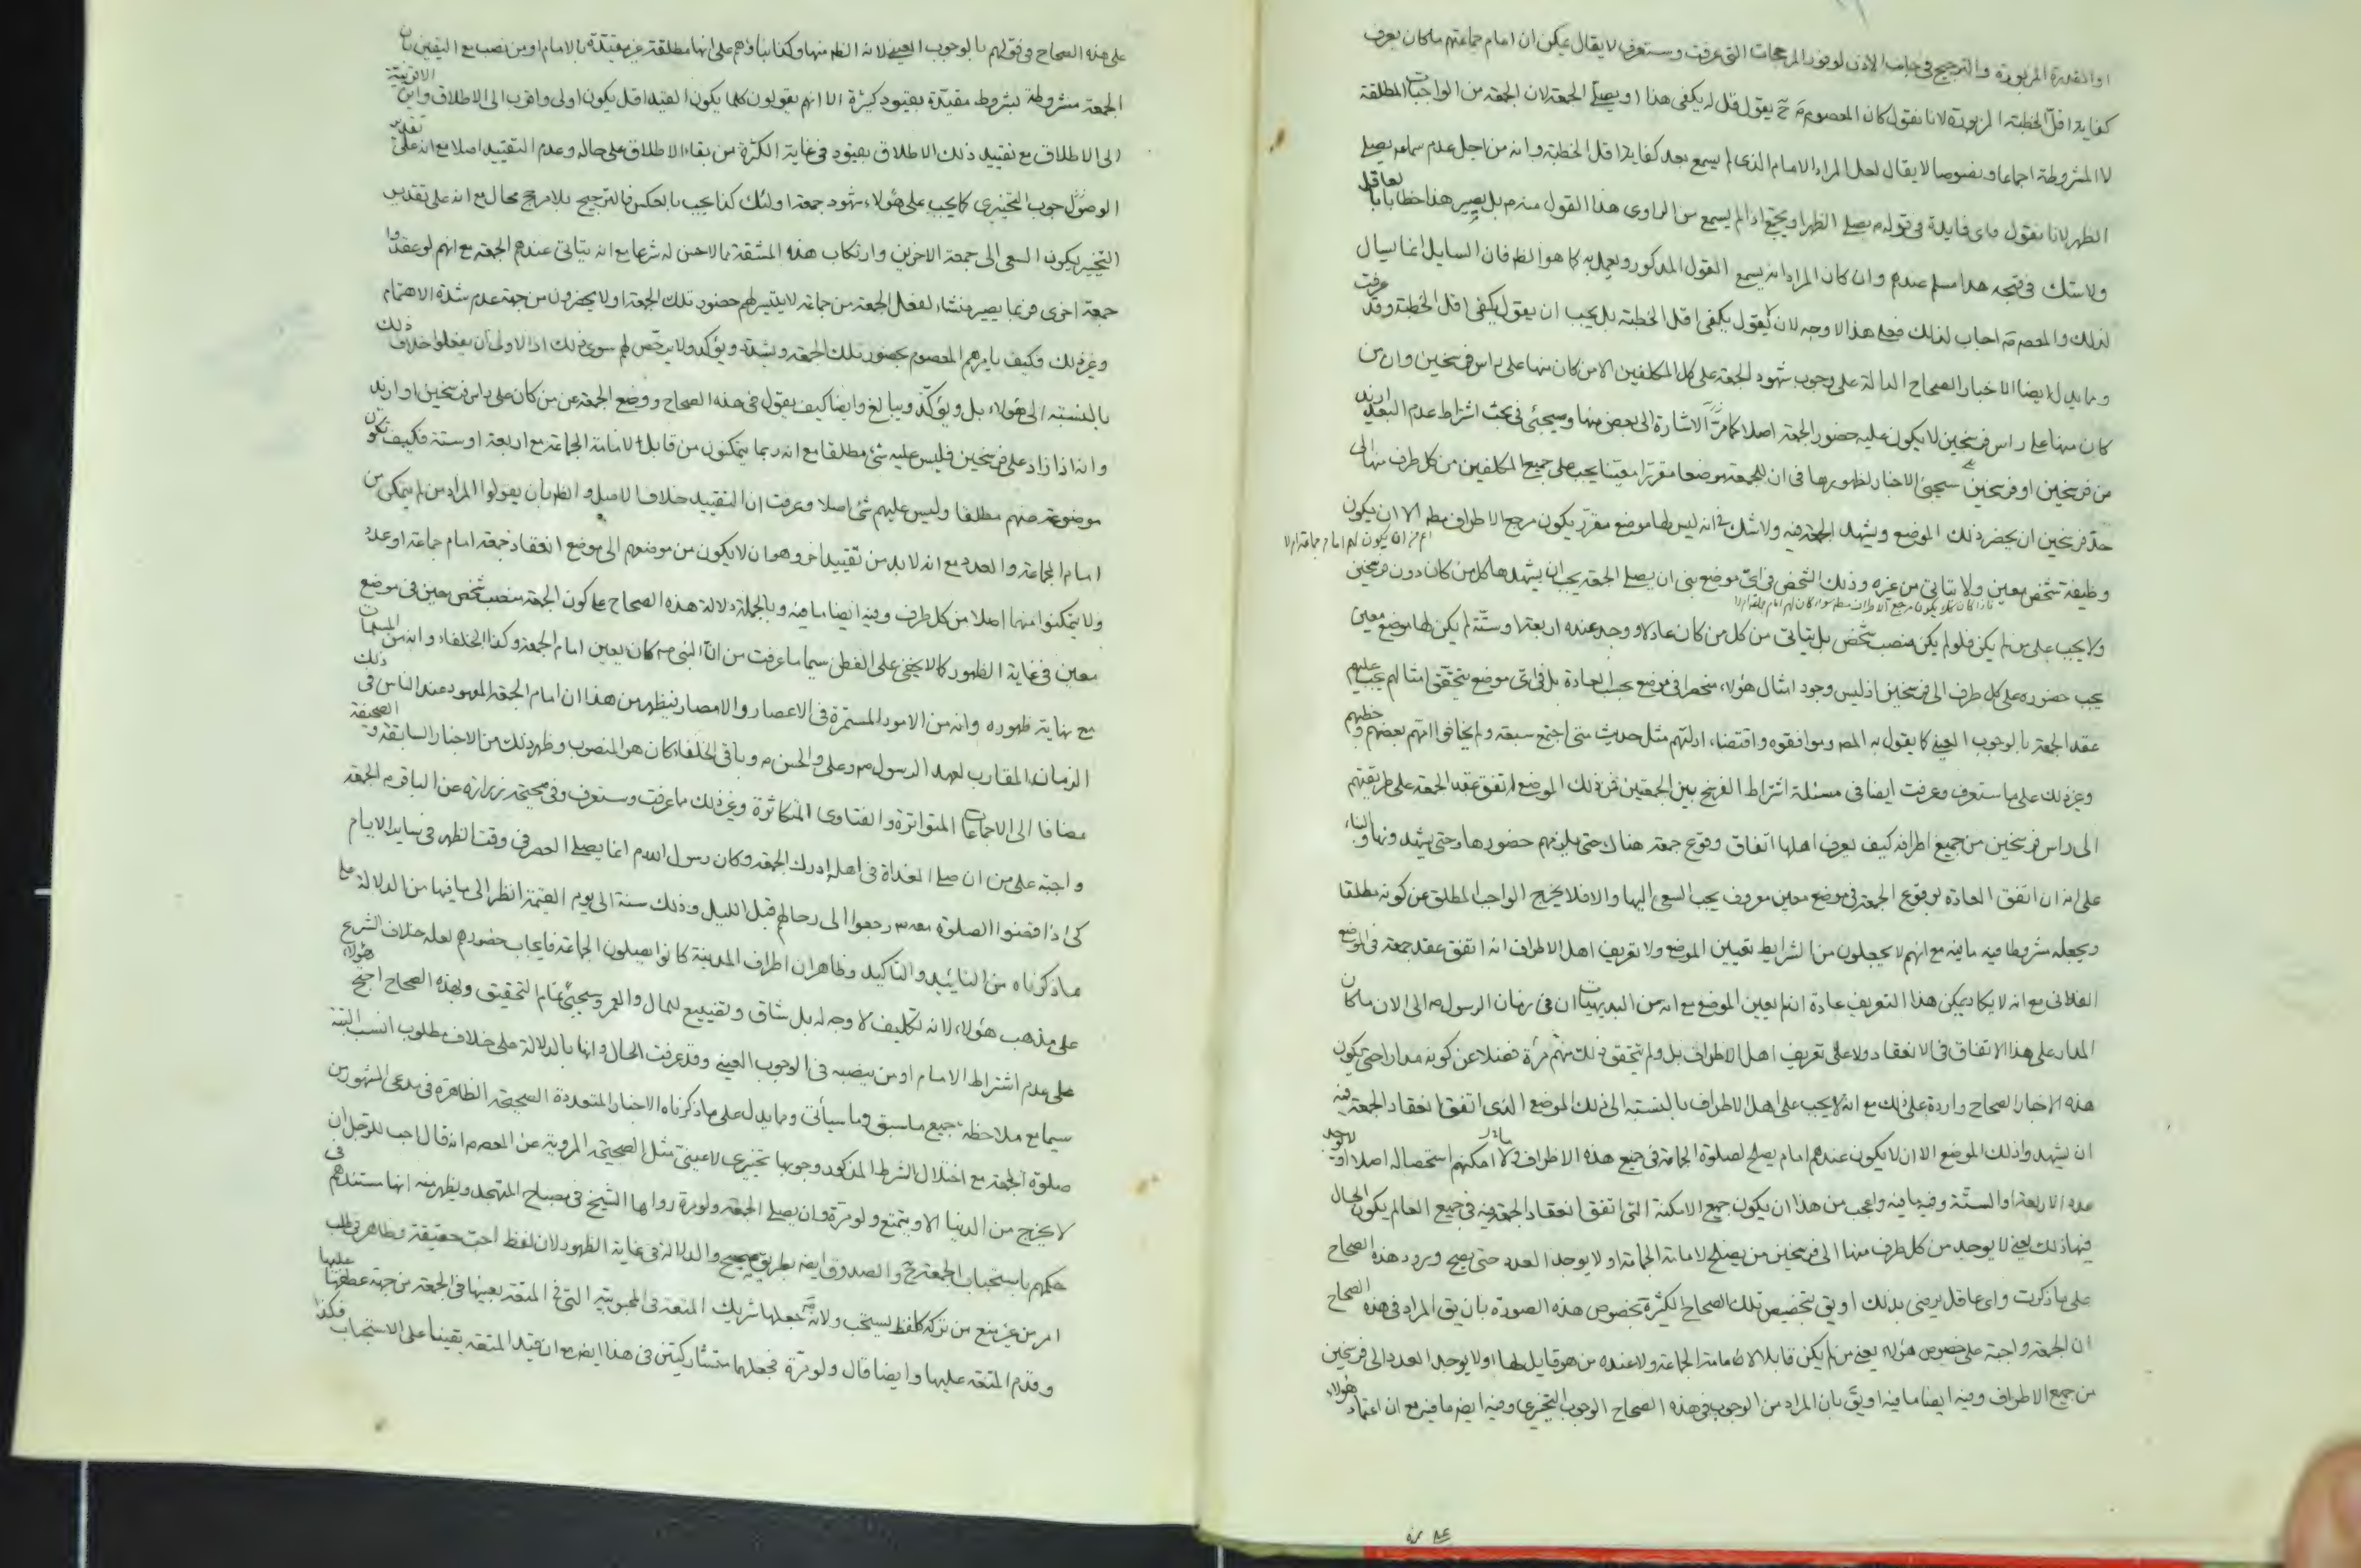 او القدرة المزبورة والترجيح فى جانب الاذن لوفور المرجحات التى عرفت وستعرف لا يقال يمكن ان امام جماعتهم ماكان يعرف
كفاية اقل الخطبة المزبورة لانا نقول كان المعصوم ح يقول قل له يكفى هذا او يصلى الجمعة لان الجمعة من الواجبات المطلقة
لا المشروطة اجماعا ونصوصا لا يقال لعل المراد الامام الذى لم يسمع بعد كفاية اقل الخطبة وانه من اجل عدم سماعه يصلى
الظهر لانا نقول فاى فايدة فى قوله يصلى الظهر او يجتمع اذا لم يسمع من الراوى هذا القول منه بل يصير هذا خطابا بالعاقل
ولا شك فى قبحه هذا مسلم عندهم وان كان المراد انه يسمع القول المذكور ويعمل به كما هو الظ فان السايل انما يسال
لذلك والمعصوم اجاب لذلك فعلى هذا لا وجه لان يقول يكفى اقل الخطبة بل يجب ان يقول يكفى اقل الخطبة وقد عرفت
ومما يدل ايضا الاخبار الصحاح الدالة على وجوب شهود الجمعة على كل المكلفين الا من كان منها على راس فرسخين وان من
كان منها على راس فرسخين لا يكون عليه حضور الجمعة اصلا كما مر الاشارة الى بعض منها وسيجئ فى بحث اشراط عدم البعد ازيد
من فرسخين او فرسخين سيجئ الاخبار لظهورها فى ان للجمعة موضعا مقررا معينا يجب على جميع المكلفين من كل طرف منها الى
حد فرسخين ان يحضر ذلك الموضع ويشهد الجمعة فيه ولا شك فى انه ليس لها موضع مقرر يكون مرجع الاطراف مط الا ان يكون
اعم من ان يكون لهم امام جماعة ام لا
وظيفة شخص معين ولا يتاتى من غيره وذلك الشخص فى اى موضع بنى ان يصلى الجمعة يجب ان يشهدها كل من كان دون فرسخين
ولا يجب على من لم يكن فلو لم يكن منصب شخص بل يتاتى من كل من كان عادلا ووجد عنده اربعة او ستة لم يكن لها موضع معين
يجب حضوره على كل طرف الى فرسخين اذ ليس وجود امثال هؤلاء منحصرا فى موضع بحسب العادة بل فى اى موضع يتحقق امثالهم يجب عليهم
عقد الجمعة بالوجوب العينى كما يقول به المص وموافقوه واقتضاء ادلتهم مثل حديث متى اجتمع سبعة ولم يخافوا امهم بعضهم وخطبهم
وغير ذلك على ما ستعرف وعرفت ايضا فى مسئلة اشتراط الفرسخ بين الجمعتين فمن ذلك الموضع اتفق عقد الجمعة على طريقتهم
الى راس فرسخين من جميع اطرافه كيف يعرف اهلها اتفاق وقوع جمعة هناك حتى يلزمهم حضورها وحتى يشهدونها والبناء
على انه ان اتفق العادة بوقوع الجمعة فى موضع معين معروف يجب السعى اليها والا فلا يخرج الواجب المطلق عن كونه مطلقا
ويجعله مشروطا فيه ما فيه مع انهم لا يجعلون من الشرايط تعيين الموضع ولا تعريف اهل الاطراف انه اتفق عقد جمعة فى الموضع
الفلانى مع انه لا يكاد يمكن هذا التعريف عادة ان لم يعين الموضع مع انه من البديهيات ان فى زمان الرسول ص الى الان ما كان
المدار على هذا الاتفاق فى الانعقاد ولا على تعريف اهل الاطراف بل ولم يتحقق ذلك منهم مرة فضلا عن كونه مدارا حتى يكون
هذه الاخبار الصحاح واردة على ذلك مع انه لا يجب على اهل الاطراف بالنسبة الى ذلك الموضع الذى اتفق انعقاد الجمعة فيه
ان يشهدوا ذلك الموضع الا ان لا يكون عندهم امام يصلح لصلوة الجماعة فى جميع هذه الاطراف ولا امكنهم استحصاله اصلا او لا يوجد
عدد الاربعة او الستة وفيه ما فيه واعجب من هذا ان يكون جميع الامكنة التى اتفق انعقاد الجمعة فيه فى جميع العالم يكون الحال
فيها ذلك يعنى لا يوجد من كل طرف منها الى فرسخين من يصلح لامامة الجماعة او لا يوجد العدد حتى يصح ورود هذه الصحاح
على ما ذكرت واى عاقل يرضى بذلك او يق بتخصيص تلك الصحاح الكثيرة بخصوص هذه الصورة بان يق المراد فى هذه الصحاح
ان الجمعة واجبة على خصوص هؤلاء يعنى من لم يكن قابلا لامامة الجماعة ولا عنده من هو قابل لها او لا يوجد العدد الى فرسخين
من جميع الاطراف وفيه ايضا ما فيه او يق بان المراد من الوجوب فى هذه الصحاح الوجوب التخيرى وفيه ايضا ما فيه مع ان اعتماد هؤلاء
على هذه الصحاح فى قولهم بالوجوب العينى لانه الظ منها وكذا بناؤهم على انها مطلقة غير مقيدة بالامام او من نصب مع اليقين بان
الجمعة مشروطة بشروط مقيدة بقيود كثيرة الا انهم يقولون كلما يكون القيد اقل يكون اولى واقرب الى الاطلاق واين الاقربية
الى الاطلاق مع تقييد ذلك الاطلاق بقيود فى غاية الكثرة من بقاء الاطلاق على حاله وعدم التقييد اصلا مع انه على تقدير
الوجوب التخييرى كما يجب على هؤلاء شهود جمعة اولئك كذا يجب بالعكس فالترجيح بلا مرجح محال مع انه على تقدير
التخيير يكون السعى الى جمعة الاخرين وارتكاب هذه المشقة مما لا حسن له شرعا مع انه يتاتى عندهم الجمعة مع انهم لو عقدوا
جمعة اخرى فربما يصير منشاء لفعل الجمعة من جماعة لا يتيسر لهم حضور تلك الجمعة او لا يحضرون من جهة عدم شدة الاهتمام
وغير ذلك فكيف يامرهم المعصوم بحضور تلك الجمعة ويشدد ويؤكد ولا يرخص لهم سوى ذلك اذ الاولى ان يفعلوا خلاف ذلك
بالنسبة الى هؤلاء بل ويؤكد ويبالغ وايضا كيف يقول فى هذه الصحاح ووضع الجمعة عن من كان على راس فرسخين او ازيد
وانه اذا زاد على فرسخين فليس عليه شئ مطلقا مع انه ربما يتمكنون من قابل لامامة الجماعة مع اربعة او ستة فكيف تكون
موضوعة عنهم مطلقا وليس عليهم شئ اصلا وعرفت ان التقييد خلاف الاصل والظ بان يقولوا المراد من لم يتمكن من
امام الجماعة والعدد مع انه لا بد من تقييد اخر وهو ان لا يكون من موضعهم الى موضع انعقاد جمعة امام جماعة او عدد
ولا يتمكنوا منهما اصلا من كل طرف وفيه ايضا ما فيه وبالجملة دلالة هذه الصحاح على كون الجمعة منصب شخص معين فى موضع
معين فى غاية الظهور كما لا يخفى على الفطن سيما ما عرفت من ان النبى ص كان يعين امام الجمعة وكذا الخلفاء وانه من المسلمات
مع نهاية ظهوره وانه من الامور المستمرة فى الاعصار والامصار فيظهر من هذا ان امام الجمعة المعهود عند الناس فى ذلك
الزمان المقارب لعهد الرسول ص وعلى والحسن ع وباقى الخلفاء كان هو المنصوب وظهر ذلك من الاخبار السابقة و الصحيفة
مضافا الى الاجماعات المتواترة والفتاوى المتكاثرة وغير ذلك مما عرفت وستعرف وفى صحيحة زرارة عن الباقر ع الجمعة
واجبة على من ان صلى الغداة فى اهله ادرك الجمعة وكان رسول الله ص انما يصلى العصر فى وقت الظهر فى ساير الايام
كى اذا قضوا الصلوة معه ص رجعوا الى رحالهم قبل الليل وذلك سنة الى يوم القيمة انظر الى ما فيها من الدلالة على
ما ذكرناه من التائيد والتاكيد وظاهر ان اطراف المدينة كانوا يصلون الجماعة فايجاب حضورهم لعله خلاف الشرع
على مذهب هؤلاء لانه تكليف لا وجه له بل شاق وتضييع للمال والعمر وسيجئ تمام التحقيق وبهذه الصحاح احتج هؤلاء
على عدم اشتراط الامام او من نصبه فى الوجوب العينى وقد عرفت الحال وانها بالدلالة على خلاف مطلوب انسب البتة
سيما مع ملاحظة جميع ما سبق وما سيأتى ومما يدل على ما ذكرناه الاخبار المتعددة الصحيحة الظاهرة فى مدعى المشهور من
صلوة الجمعة مع اختلال الشرط المذكور وجوبها تخييرى لا عينى مثل الصحيحة المروية عن المعصوم انه قال احب للرجل ان
لا يخرج من الدنيا الا ويتمتع ولو مرة وان يصلى الجمعة ولو مرة رواها الشيخ فى مصباح المتهجد ويظهر منه انها مستندهم فى
حكمهم باستحباب الجمعة ح والصدوق ايضا بطريق صحيح والدلالة فى غاية الظهور لان لفظ احب حقيقة وظاهر فى طلب
امر من غير منع من تركه كلفظ يستحب ولانه ع جعلها شريك المتعة فى المحبوبية التى فى المتعة بعينها فى الجمعة من جهة عطفها عليها
وقدم المتعة عليها وايضا قال ولو مرة فجعلهما متشاركتين فى هذا ايضا مع ان قيد المتعة يقينا على الاستحباب فكذا